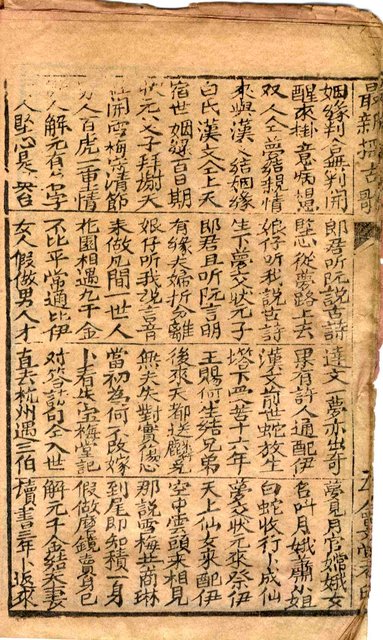 最新採古歌
姻緣判合無判開 郎君听阮說古詩 達文一夢亦出奇 夢見月宮嫦娥女
醒來掛意病相思 堅心從夢路上去 累有許人通配伊 名叫月娥蕭小姐
双人仝夢結親情 娘仔听我說古詩 漢文前世蛇放生 白蛇收行卜成仙
來與漢文結姻緣 生下夢文狀元子 塔下受苦十六年 夢文狀元來祭伊
白氏漢文仝上天 郎君且听阮言明 王賜何生結兄弟 天上仙女來配伊
宿世姻緣百日期 有緣夫婦拆分離 後來天都送麒兒 空中雲頭來相見
狀元父子拜謝天 娘仔听我說言音 無夫失對實傷心 那說雪梅共商琳
開雪梅守清節 未做凡間一世人 當初為何不改嫁 到尾即知積一身
人百虎一重情 花園相遇九千金 卜看失宝梅掌記 假做磨鏡賣身己
人解元有名字 不比平常通比伊 對答詩句仝入世 解元千金結夫妻
人堅心是英台 女人假做男人才 直去杭州遇三伯 讀書三年卜返來